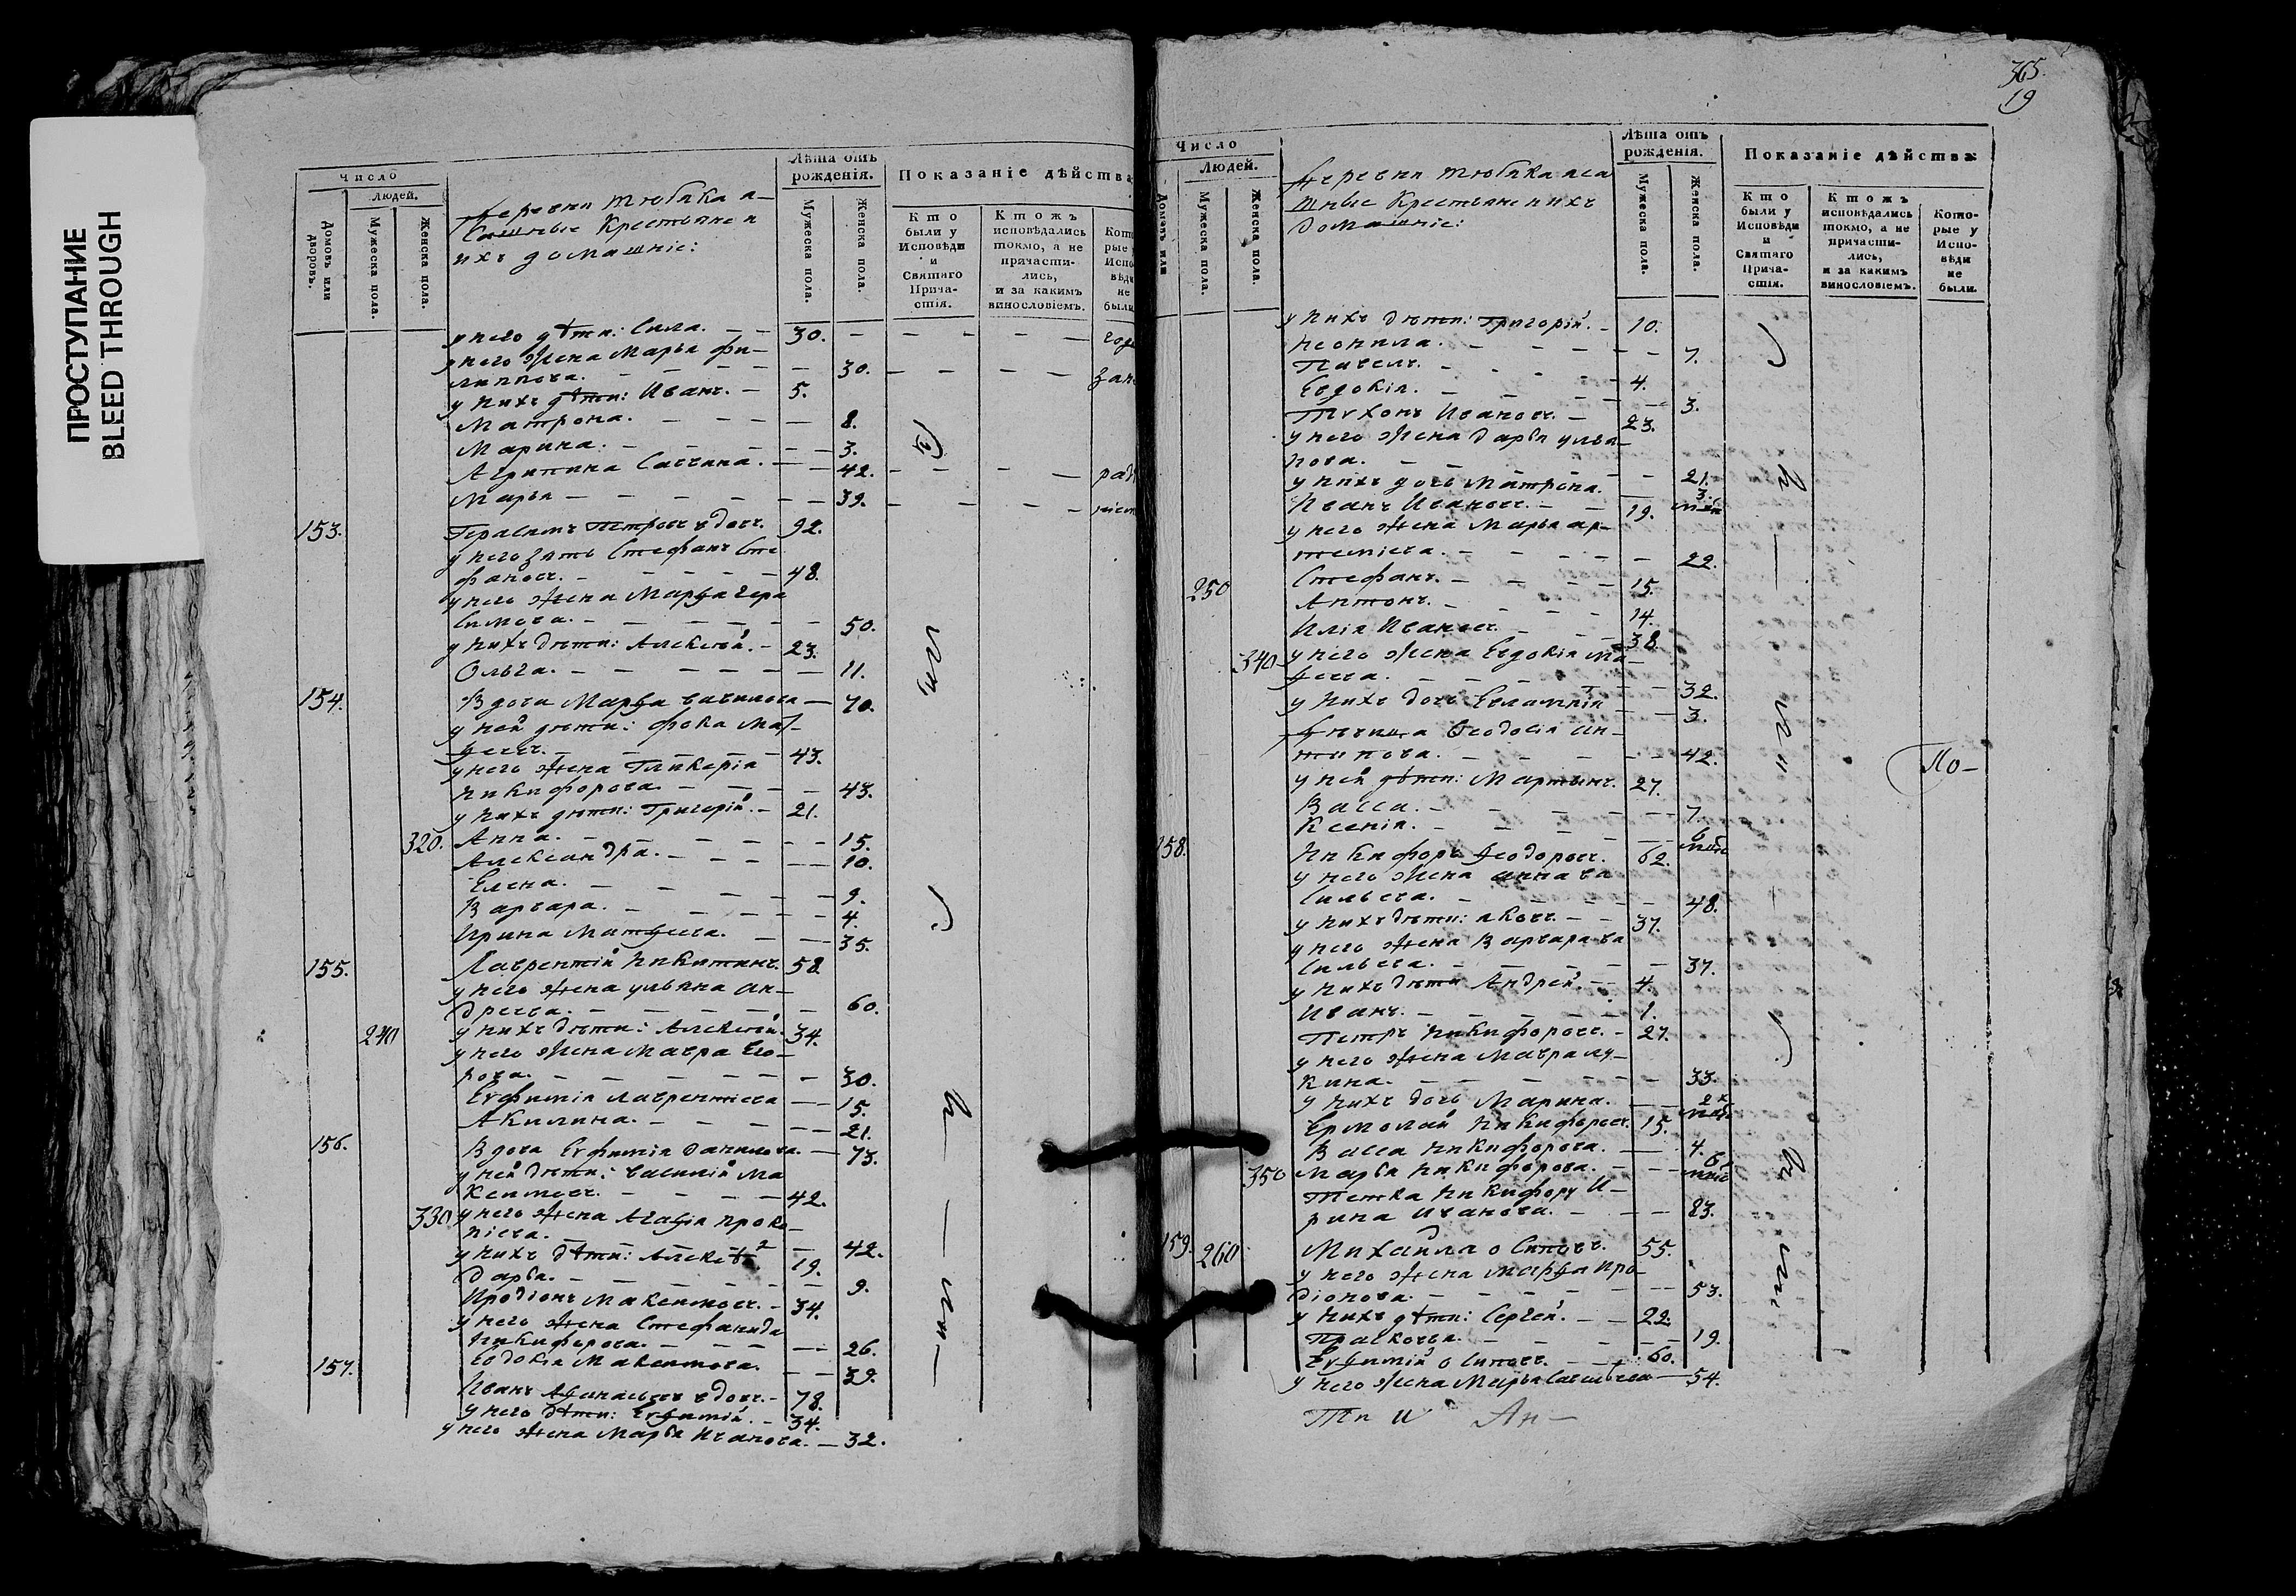 ПРОСТУПАНИЕ
BLEED THROUGH
Число
Людей.
Домовъ или дворовъ.
Мужеска пола.
Женска пола.
деревни
крестьяне и
ихъ домашніе:
Лѣта отъ рожденія.
Мужеска пола.
Женска пола.
Показаніе дѣйства
Кто были у Исповѣди и Святаго Прича-стія.
Ктожъ исповѣдались токмо, а не причасти-лись, и за какимъ винословіемъ.
у него дѣти: Сила. 30.
у него жена Марья Фи-
липпова. 30.
у нихъ дѣти: Иванъ. 5.
Матрона. 8.
Марина. 3.
Агрипина Саввина. 42.
Марья 39.
153. Герасимъ Петровъ вдовъ. 92.
у него зять Стефанъ Сте
фановъ. 48.
у него жена Марѳа Гера
симова. 50.
у нихъ дѣти: Алексѣй. 23.
Ольга. 11.
154. Вдова Марѳа 70.
у ней дѣти: Фока Мат-
ѳеевъ. 43.
у него жена Гликерія
Никифорова. 43.
у нихъ дѣти: Григорій. 21.
320. Анна. 15.
Александра. 10.
Елена. 9.
Варвара. 4.
Ирина Матѳеева. 35.
155. Лаврентій Никитинъ. 58.
у него жена Ульяна Ан-
дреева. 60.
240 у нихъ дѣти: Алексѣй. 34.
у него жена Мавра Его-
рова. 30.
Евфимія Лаврентіева 15.
Акилина. 21.
156. Вдова Евфимія Данилова. 73.
у ней дѣти: Василій Ма
ксимовъ. 42.
330 у него жена Агаѳія Проко-
піева. 42.
у нихъ дѣти: 19.
Дарья. 9.
Иродіонъ Максимовъ. 34.
у него жена Стефанида
Никифорова. 26.
Евдокія Максимова. 39.
157. Иванъ Аѳанасьевъ вдовъ. 78.
у него дѣти: Евѳимій. 34.
у него жена Марья Иванова. 32.
365.
19
Число
Людей.
Домовъ или
Мужеска пола.
Женска пола.
деревни
крестьяне и ихъ
домашніе:
Лѣта отъ рожденія.
Мужеска пола.
Женска пола.
Показаніе дѣйства
Кто были у Исповѣди и Святаго Прича-стія.
Ктожъ исповѣдались токмо, а не причасти-лись, и за какимъ винословіемъ.
Кото-рые у Испо-вѣди не были.
у нихъ дѣти: Григорій. 10.
Неонила. 7.
Павелъ. 4.
Евдокія. 3.
Тихонъ Ивановъ. 23.
у него жена Дарья Улья-
нова. 21.
у нихъ дочь Матрона. 3.
Иванъ Ивановъ. 19.
у него жена Марья Ар-
темьева. 22.
250 Стефанъ. 15.
Антонъ. 14.
Илія Ивановъ. 38
340 у него жена Евдокія Ма-
ѳеева. 32.
у нихъ дочь Евлампія 3.
Ѳеодосія Ан-
типова. 42.
у ней дѣти: Мартынъ. 27.
Васса. 7.
Ксенія. 6
158. Никифоръ Ѳеодоровъ. 62.
у него жена Анна Ва
сильева. 48.
у нихъ дѣти: Яковъ. 37.
у него жена Варвара Ва
сильева. 37.
у нихъ дѣти Андрей. 4.
Иванъ. 1.
Петръ Никифоровъ. 27.
у него жена Мавра Лу-
кина. 33.
у нихъ дочь Марина.
Ермолай Никифоровъ. 15.
Васса Никифорова. 4.
350 Марья Никифорова. 6
Тетка Никифору И-
рина Иванова. 83.
159. 260 Михайла Осиповъ. 55.
у него жена Марѳа Иро-
діонова. 53.
у нихъ дѣти: Сергей. 22.
Прасковья. 19.
Евѳимій Осиповъ. 60.
у него жена Марья Савельева 54.
По-